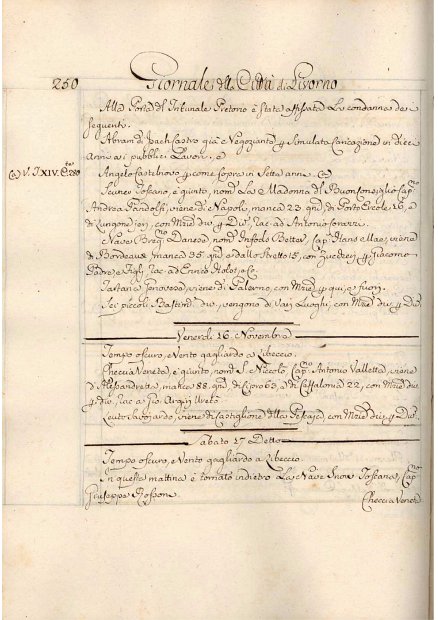 250 Giornale della Città di Livorno
Alla Porta del Tribunale Pretorio è stata affissata La condanna dei
seguenti.
Abram di Isach Castro già è Negoziante p simulata Caricazione in dieci
Anni ai pubblici Lavori, e
(a) V. T. XIV. C. 280 Angelo Castelnovo p come sopra in Sette anni. (a)
Toscano, è giunto, nom.º La Madonna di Buon Consiglio Cap.no
Andrea Pandolfi, viene di Napoli, manca 23. g.ni di Port'Ercole 16, e
di Longone ieri, con Mrzie div. p Div.
Nave Danese nom.ª Cap. Hans Mae, viene
di Bordeaux manca 35. g.ni e dallo stretto 15, con Zuccheri p Giacomo
Padre, e Figli, rac. ad Enrico
Tartana Genovesa, viene di Palermo, con Mrzie p qui, e fuori.
Sei piccoli Bastim.ti div. vengono di varj Luoghi, con Mrzie div. p Div.
Venerdi 26. Novembre
Tempo oscuro, e Vento gagliardo a Libeccio.
Checcia Veneta, è giunto, nom.ª S. Niccolò, Cap.no Antonio Valletta, viene
d'Alessandretta, manca 88. g.ni di Cipro 63, e di Ceffalonia 22, con Mrzie div.
p Div. rac. a
Leuto Savojardo, viene di Castiglione della Pescaja, con Mrzie div. p Div.
Sabato 27 Detto
Tempo oscuro, e Vento gagliardo a Libeccio.
In questa mattina è tornato indietro La Nave Snow Toscana, Cap.no
Giuseppe
Checcia Veneta